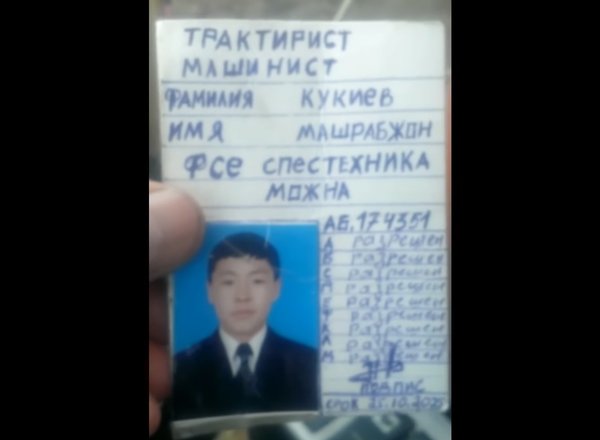 ТРАКТИРИСТ
МАШИНИСТ
ФАМИЛИЯ КУКИЕВ
ИМЯ МАШРАБЖОН
ФСЕ СПЕСТЕХНИКА
МОЖНА
АБ,174351
А разрешен
В разрешен
С разрешен
разрешен
Е разрешен
разрешен
разрешен
разрешен
М разрешен
ПОДПИС
СРОК 25.10.2025